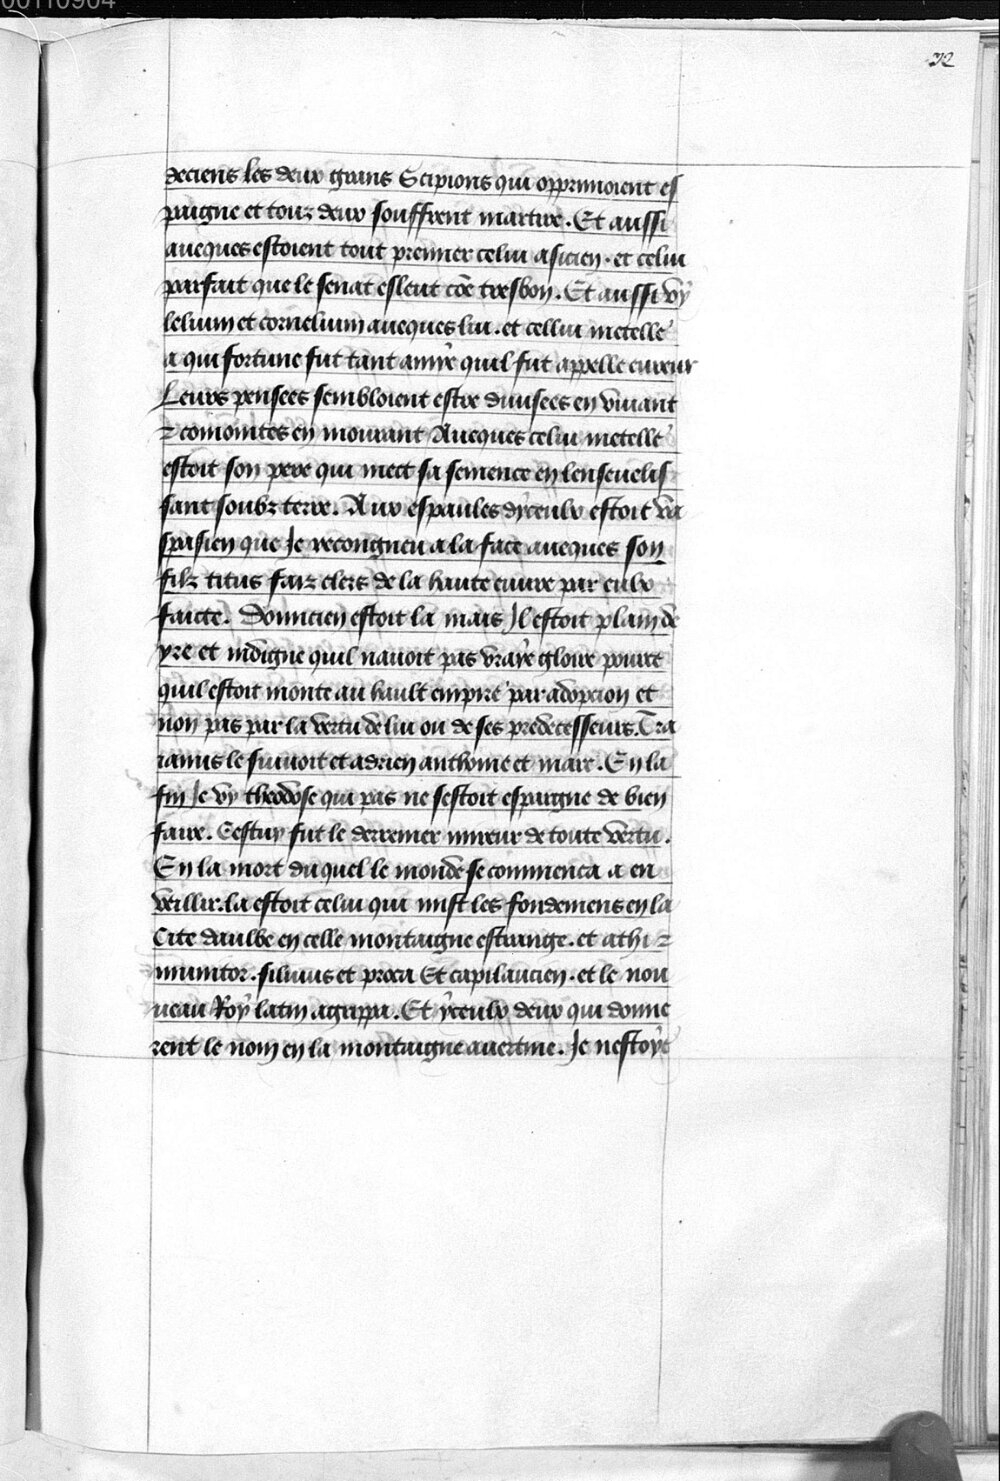 00110904
72
deciens les deux grans Scipions qui opprimoient es
paigne et touz deux souffrent martire. Et aussi
aueques estoient tout premier celui asicien. et celui
parfait que le senat esleut cõe tresbon. Et aussi vy
lelium et cornelium aueques lui. et cellui metelle
a qui fortune fut tant amye quil fut appelle eureux
Leurs pensees sembloient estre diuisees en viuant
z comointes en mourant Aueques celui metelle
estoit son pere qui mect sa semence en lenseuelis
sant soubz terre. Aux espaules dyceulx estoit va
spasien que Je recongneu a la face aueques son
filz titus faiz clers de la haute euure par eulx
faicte. Domicien estoit la mais Il estoit plain de
yre et indigne quil nauoit pas vraye gloire pource
quil estoit monte au hault empire par adopcion et
non pas par la vertu de lui ou de ses predecesseurs. Tra
ianus le suiuoit et adrien anthoine et marc. En la
fin Je vy theodose qui pas ne sestoit espargne de bien
faire. Cestuy fut le derrenier mireur de toute vertu.
En la mort duquel le monde se commenca a en
veillir. la estoit celui qui mist les fondemens en la
Cite daulbe en celle montaigne estrange. et athi z
munitor. siluius et proca Et capilaucien. et le nou
ueau Roy latin agrippa. Et yceulx deux qui donne
rent le nom en la montaigne auertine. Je nestoye